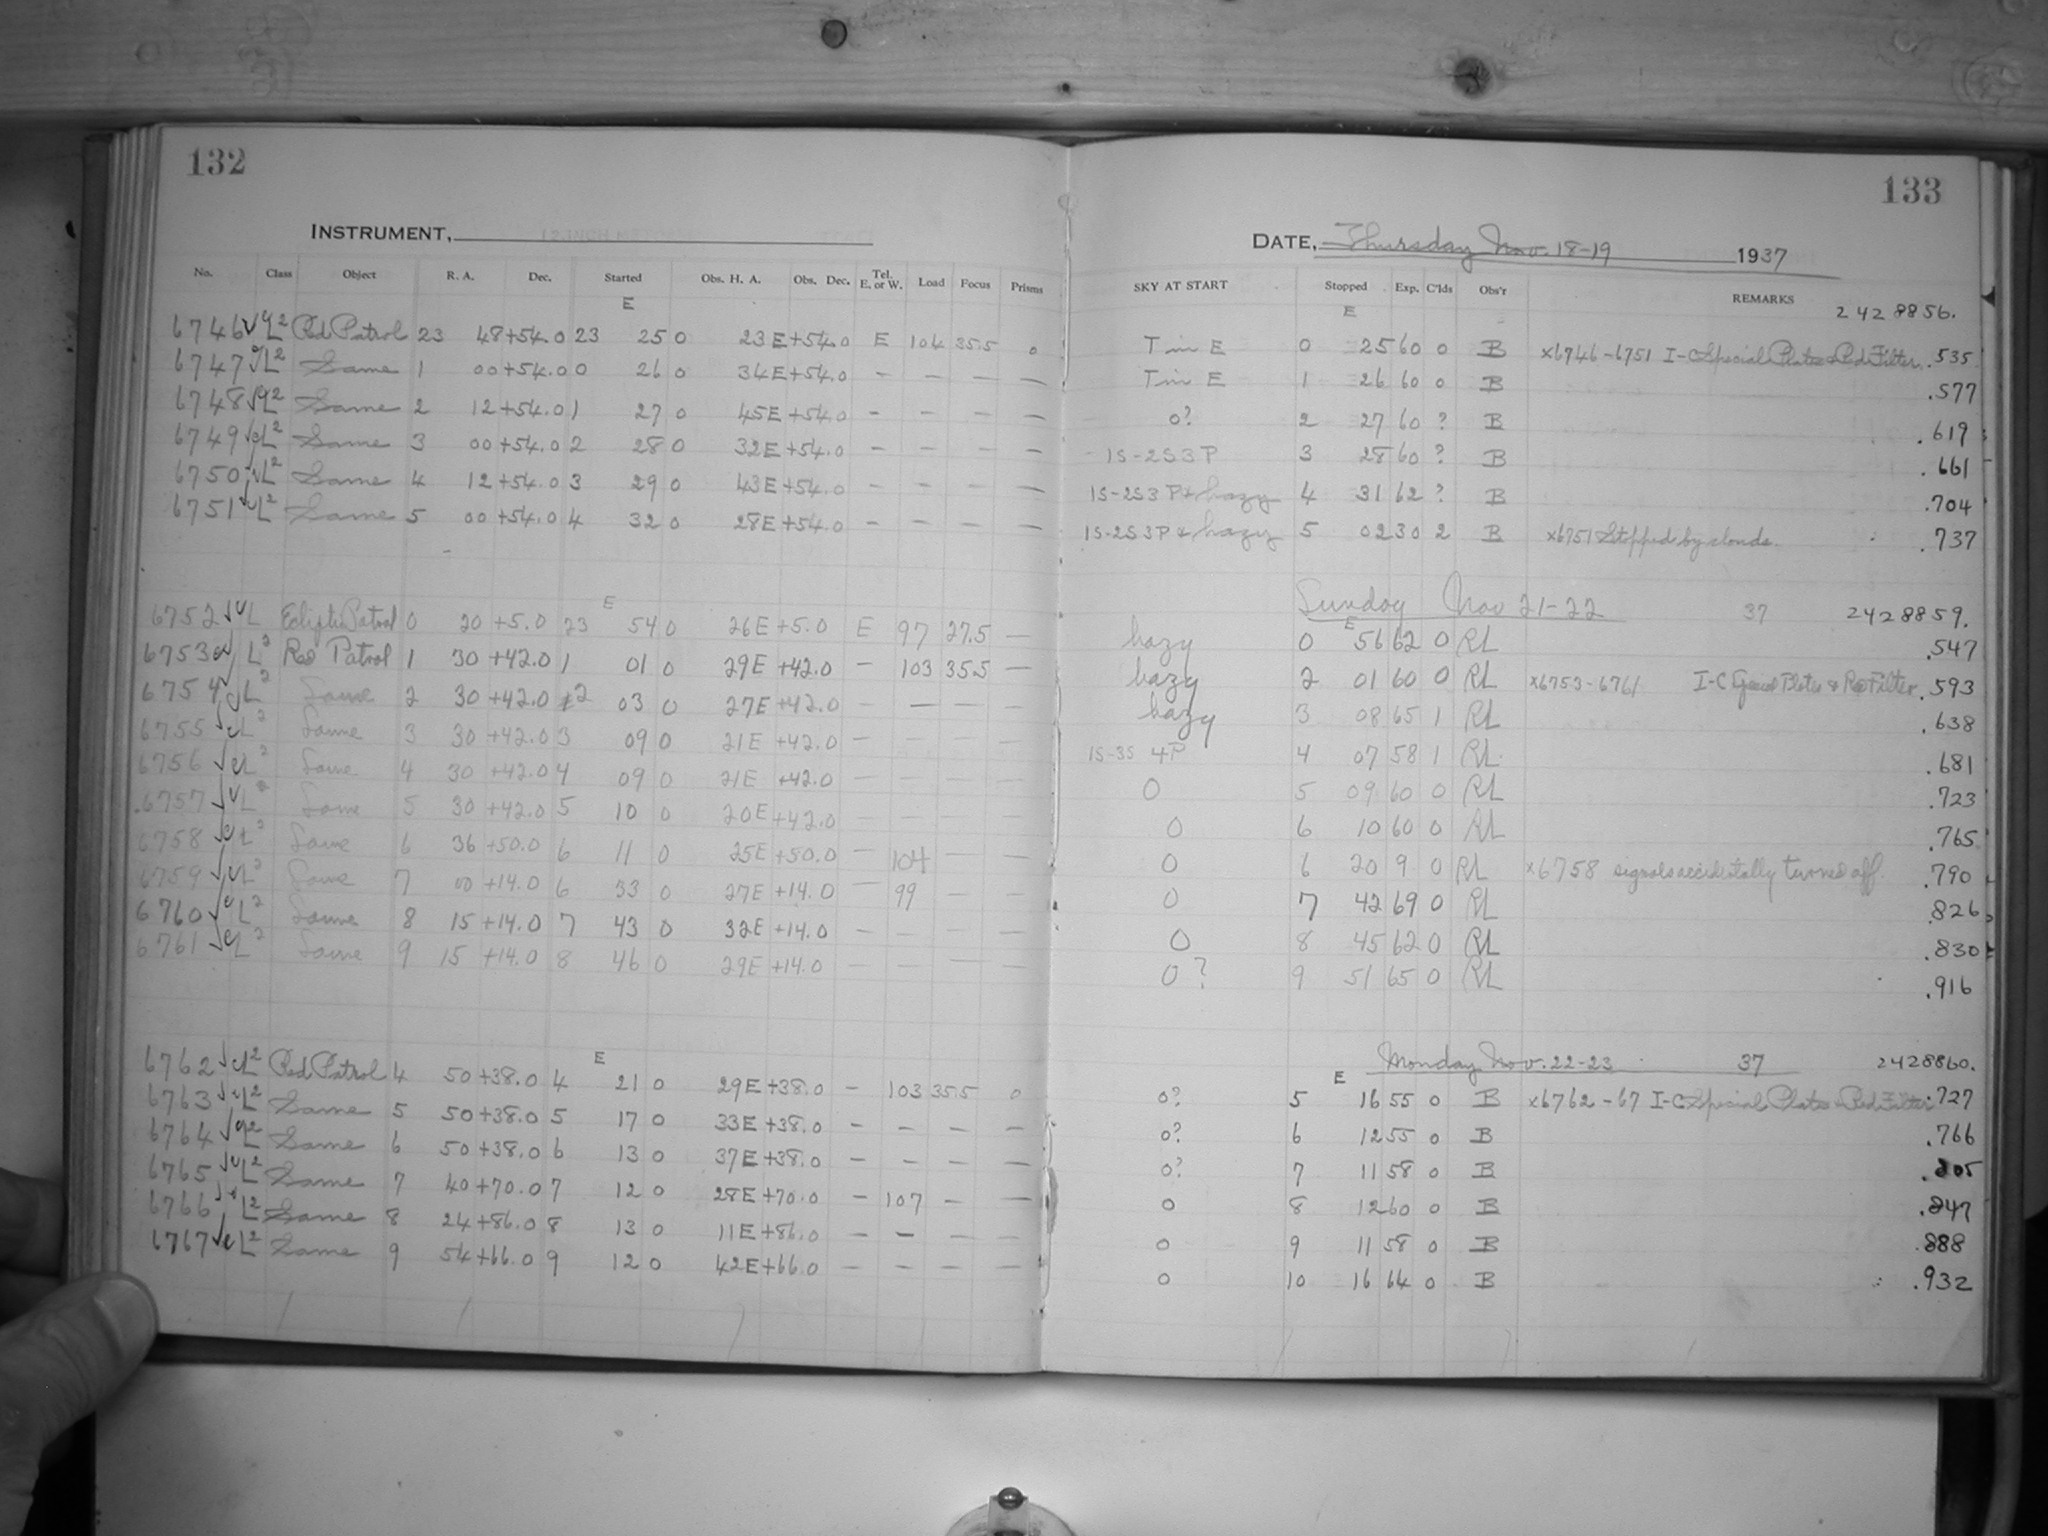 132
INSTRUMENT,
No. Class Object R. A. Dec. Started Obs. H. A. Obs. Dec. Tel. E. or W. Load Focus Prisms
E
6746 L2 Red Patrol 23 48 +54.0 23 25 0 23E +54.0 E 104 35.5 0
6747 L2 Same 1 00 +54.0 0 26 0 34E +54.0 — — — —
6748 L2 Same 2 12 +54.0 1 27 0 45E +54.0 — — — —
6749 L2 Same 3 00 +54.0 2 28 0 32E +54.0 — — — —
6750 L2 Same 4 12 +54.0 3 29 0 43E +54.0 — — — —
6751 L2 Same 5 00 +54.0 4 32 0 28E +54.0 — — — —
E
6752 L Eclipti Patrol 0 20 +5.0 23 54 0 26E +5.0 E 97 27.5 —
6753 L2 Red Patrol 1 30 +42.0 1 01 0 29E +42.0 — 103 35.5 —
6754 L2 Same 2 30 +42.0 2 03 0 27E +42.0 — — — —
6755 L2 Same 3 30 +42.0 3 09 0 21E +42.0 — — — —
6756 L2 Same 4 30 +42.0 4 09 0 21E +42.0 — — — —
6757 L2 Same 5 30 +42.0 5 10 0 20E +42.0 — — — —
6758 L2 Same 6 36 +50.0 6 11 0 25E +50.0 — 104 — —
6759 L2 Same 7 00 +14.0 6 33 0 27E +14.0 — 99 — —
6760 L2 Same 8 15 +14.0 7 43 0 32E +14.0 — — — —
6761 L2 Same 9 15 +14.0 8 46 0 29E +14.0 — — — —
E
6762 L2 Red Patrol 4 50 +38.0 4 21 0 29E +38.0 — 103 35.5 0
6763 L2 Same 5 50 +38.0 5 17 0 33E +38.0 — — — —
6764 L2 Same 6 50 +38.0 6 13 0 37E +38.0 — — — —
6765 L2 Same 7 40 +70.0 7 12 0 28E +70.0 — 107 — —
6766 L2 Same 8 24 +86.0 8 13 0 11E +86.0 — — — —
6767 L2 Same 9 54 +66.0 9 12 0 42E +66.0 — — — —
133
DATE, Thursday Nov. 18-19 1937
SKY AT START Stopped Exp. C'lds Obs'r REMARKS
E 2428856.
T in E 0 25 60 0 B x6746-6751 I-C Special Plates & Red Filter .535
T in E 1 26 60 0 B .577
0? 2 27 60 ? B .619
1S-2S 3P 3 28 60 ? B .661
1S-2S 3P & hazy 4 31 62 ? B .704
1S-2S 3P & hazy 5 02 30 2 B x6751 Stopped by clouds. .737
Sunday Nov 21-22 37 2428859.
E
hazy 0 56 62 0 RL .547
hazy 2 01 60 0 RL x6753-6761 I-C Special Plates & Red Filter .593
hazy 3 08 65 1 RL .638
1S-3S 4P 4 07 58 1 RL .681
0 5 09 60 0 RL .723
0 6 10 60 0 RL .765
0 6 20 9 0 RL x6758 signals accidentally turned off. .790
0 7 42 69 0 RL .826
0 8 45 62 0 RL .830
0? 9 51 65 0 RL .916
Monday Nov. 22-23 37 2428860.
E
0? 5 16 55 0 B x6762-67 I-C Special Plates & Red Filter .727
0? 6 12 55 0 B .766
0? 7 11 58 0 B .805
0 8 12 60 0 B .847
0 9 11 58 0 B .888
0 10 16 64 0 B .932